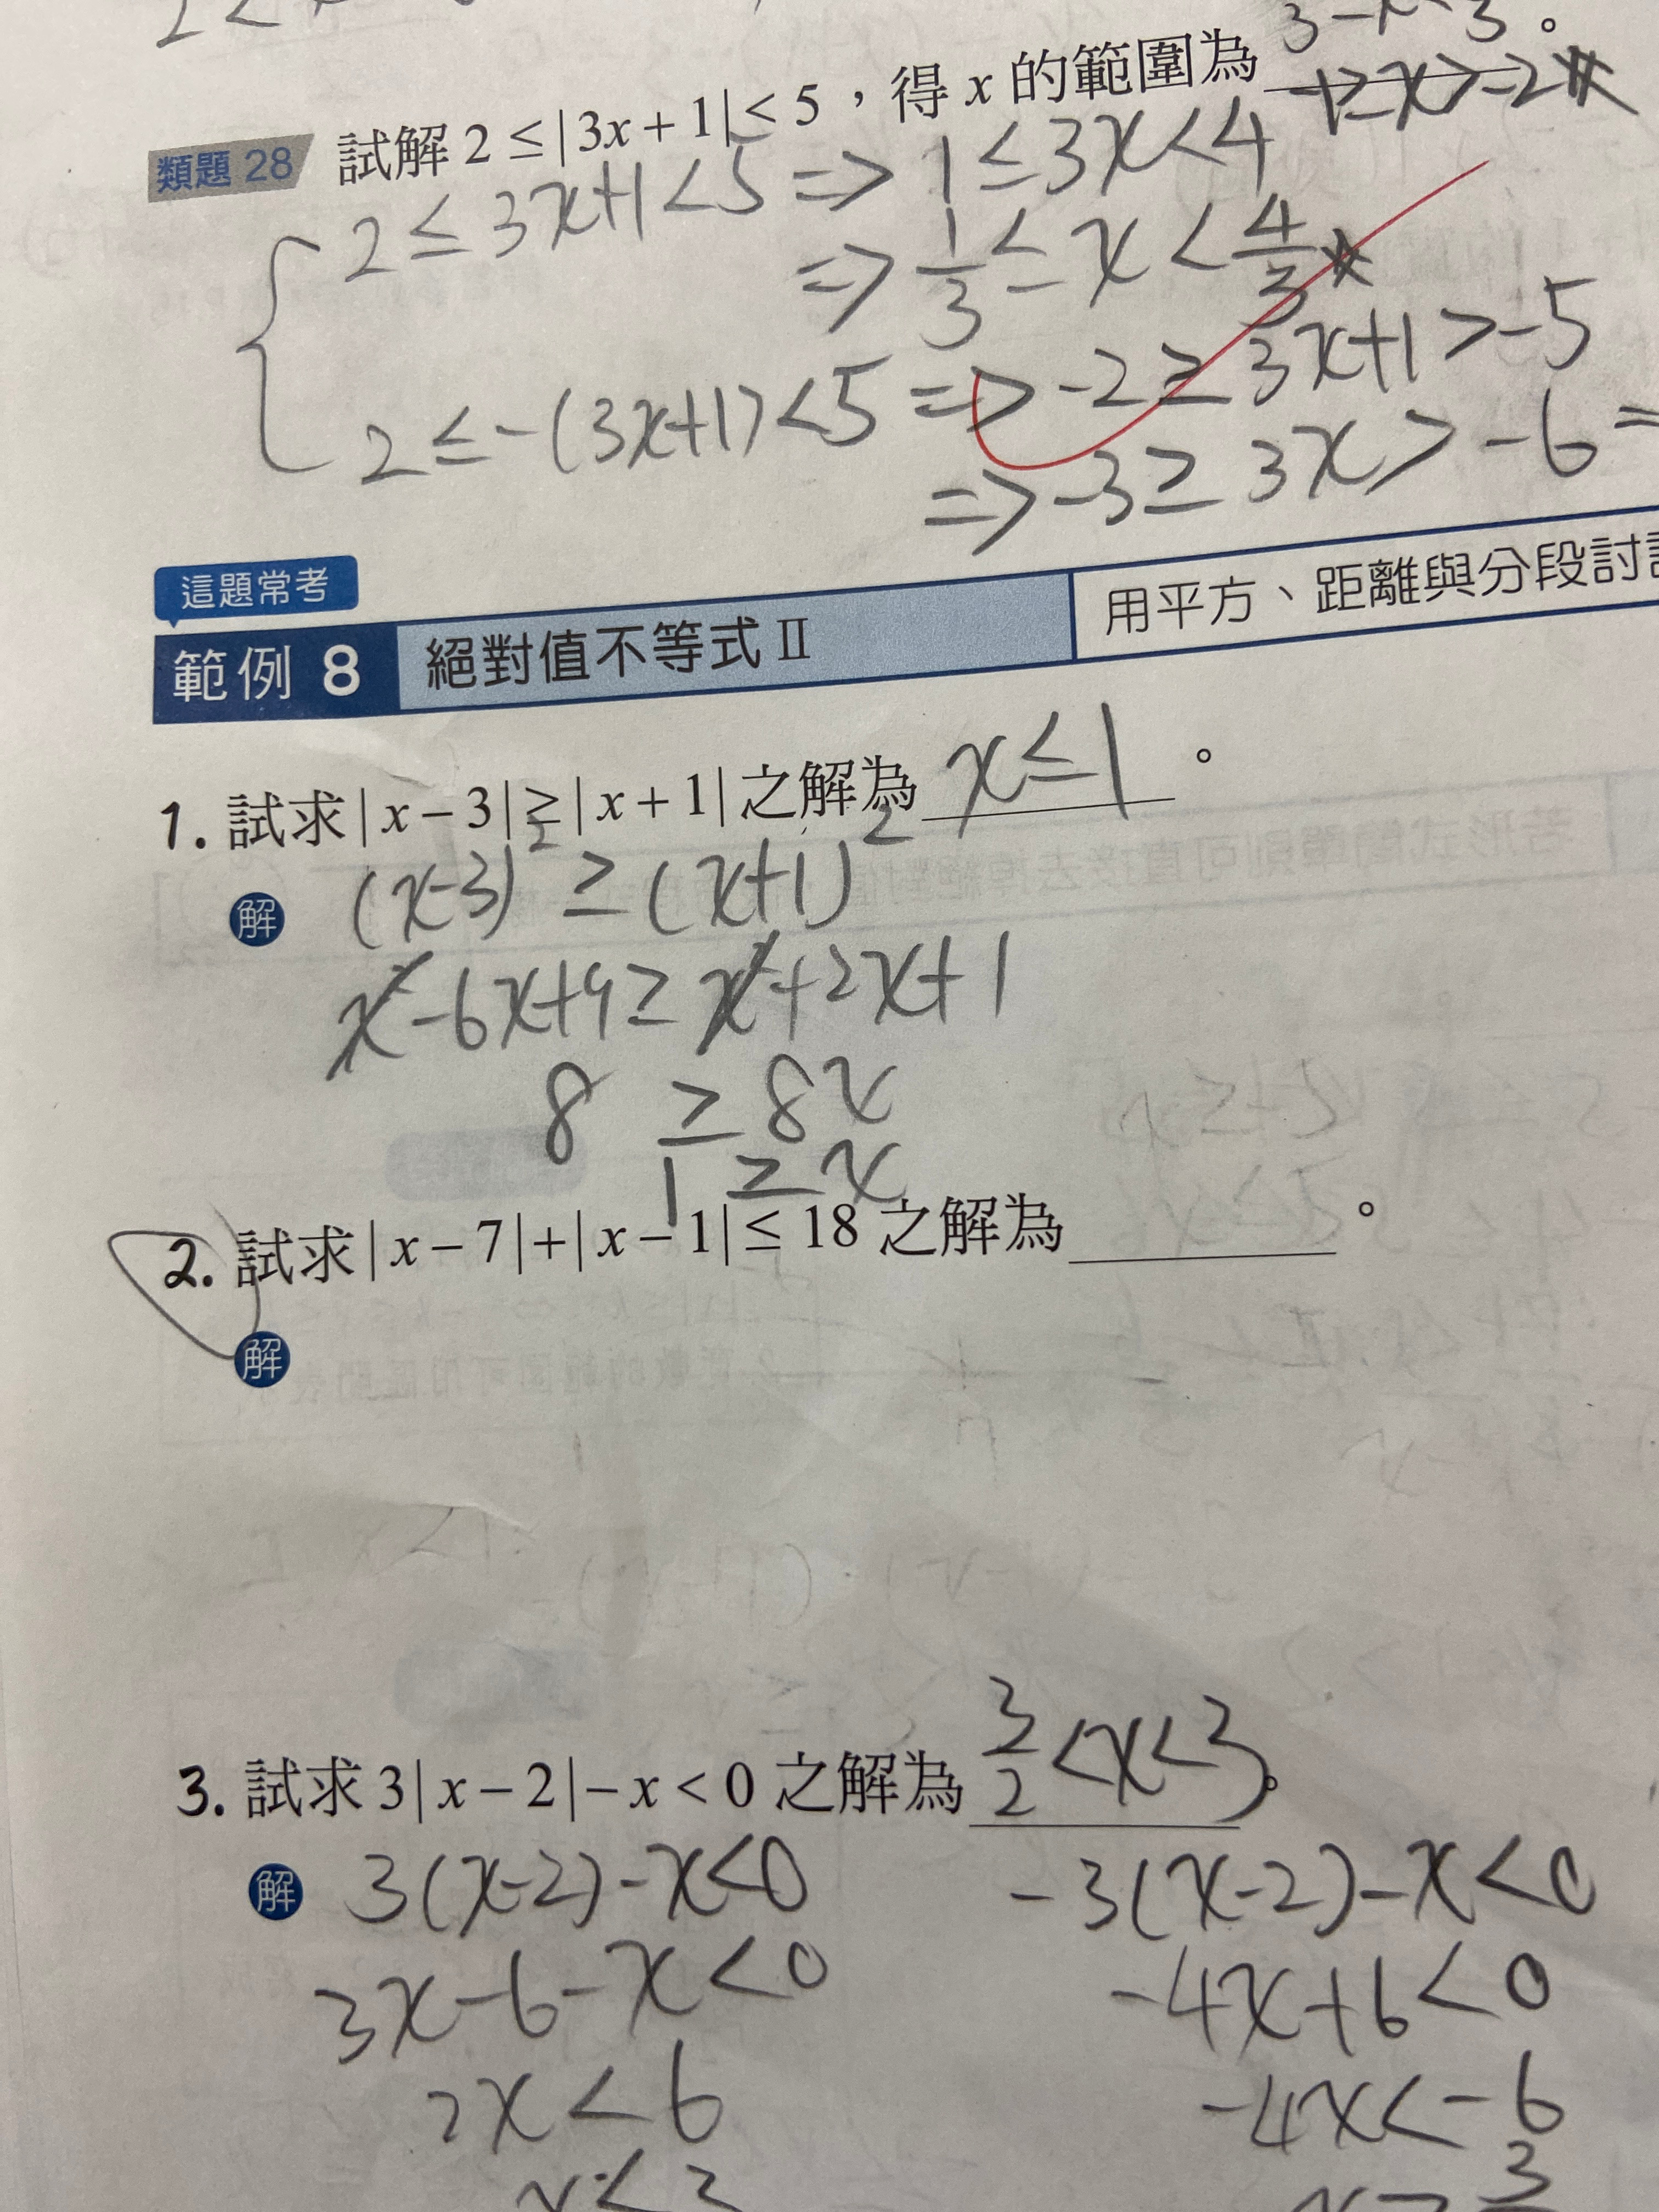 3
類題 28 試解 2 ≤ | 3x + 1 | < 5 ，得 x 的範圍為 -1 ≥ x > -2 。
2 ≤ 3x+1 < 5 => 1 ≤ 3x < 4
=> 1/3 ≤ x < 4/3
2 ≤ -(3x+1) < 5 => -2 ≥ 3x+1 > -5
=> -3 ≥ 3x > -6 =
這題常考
範例 8 絕對值不等式 II 用平方、距離與分段討
1. 試求 | x − 3 | ≥ | x + 1 | 之解為 x ≤ 1 。
解 (x-3)² ≥ (x+1)²
x² -6x+9 ≥ x² +2x+1
8 ≥ 8x
1 ≥ x
2. 試求 | x − 7 | + | x − 1 | ≤ 18 之解為 。
解
3. 試求 3 | x − 2 | − x < 0 之解為 3/2 < x < 3 。
解 3(x-2)-x<0 -3(x-2)-x<0
3x-6-x<0 -4x+6<0
2x < 6 -4x<-6